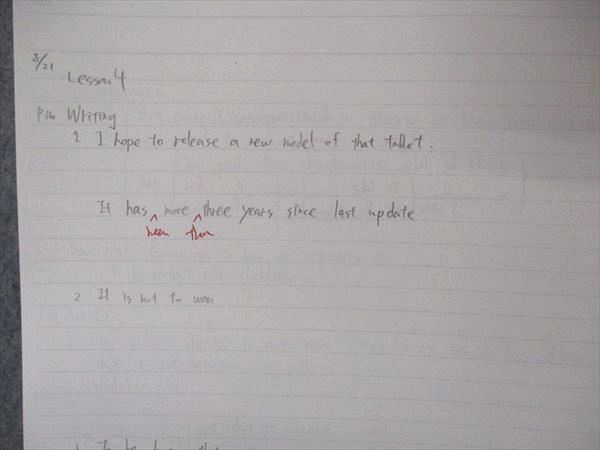 8/21
Lesson 4
Writing
1 I hope to release a new model of that tablet.
It has more three years since last update.
been than
2 It is not to